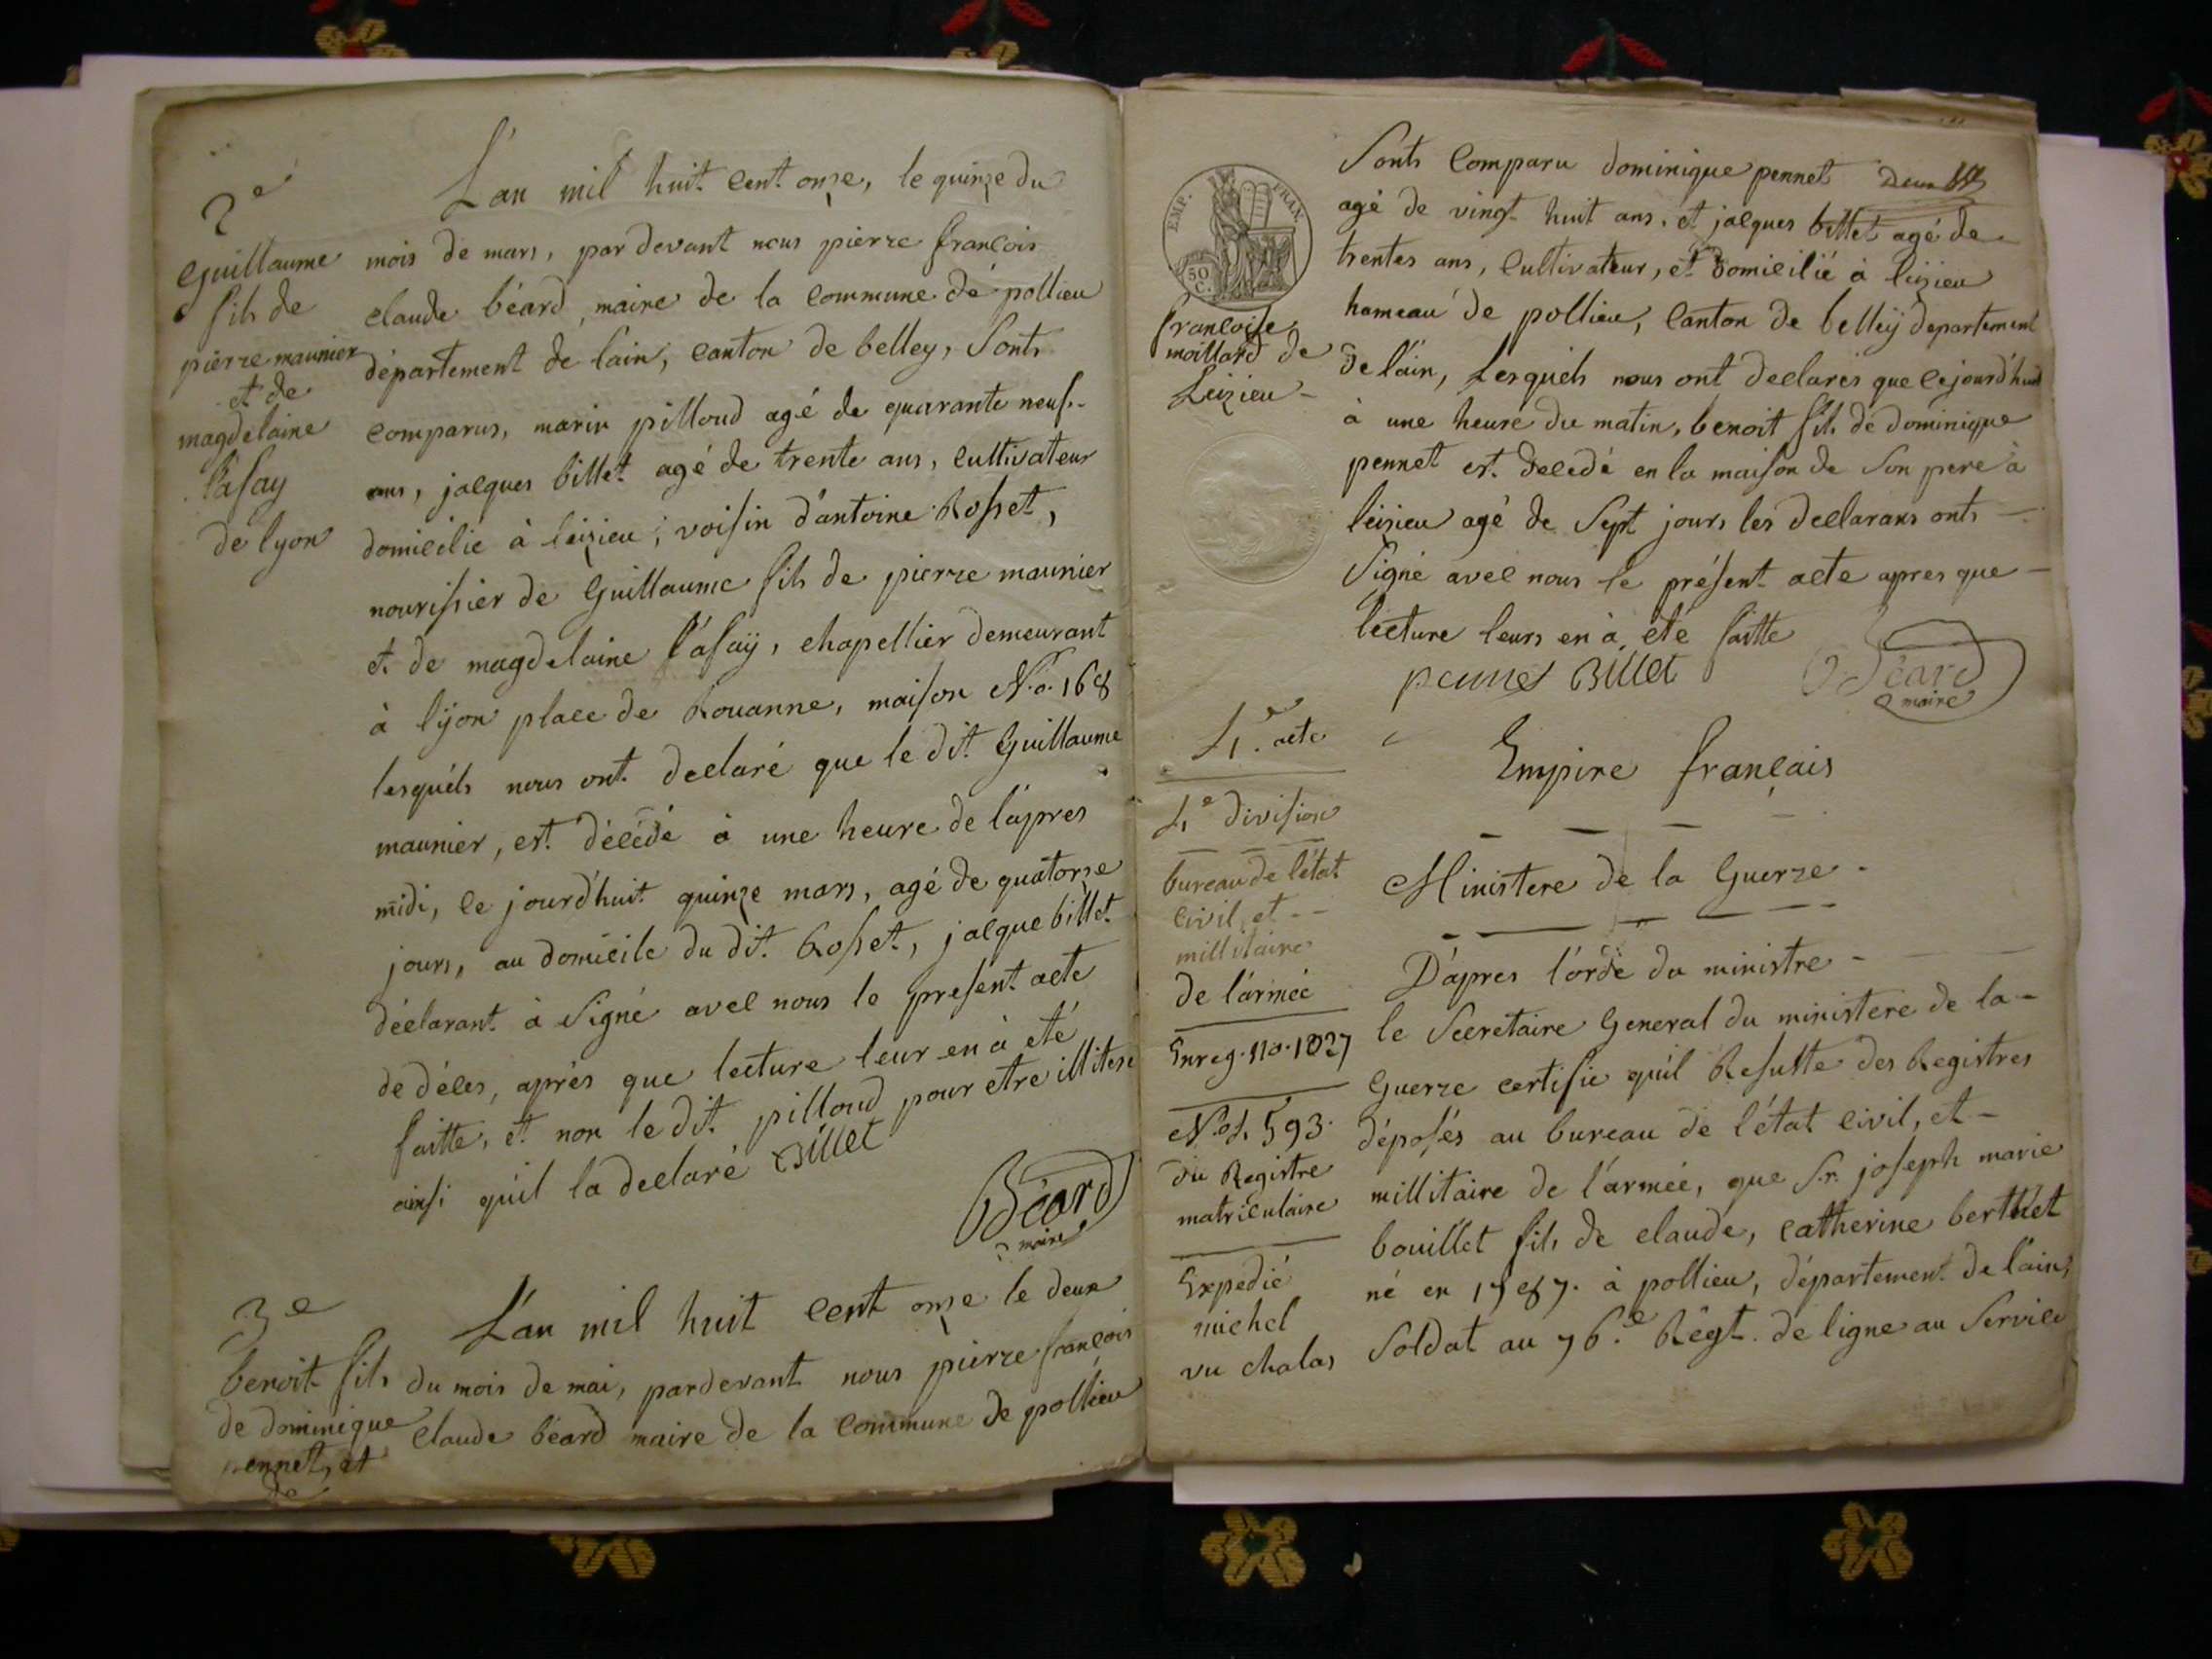 2e
Guillaume
fils de
pierre maunier
et de
magdelaine
lafay
de lyon
L'an mil huit cent onze, le quinze du
mois de mars, par devant nous pierre françois
claude béard, maire de la commune de pollieu
département de l'ain, canton de belley, Sonts
comparus, marin pilloud agé de quarante neuf
ans, jacques billet agé de trente ans, cultivateur
domicilié à leizieu, voisin d'antoine Rosset,
nourissier de Guillaume fils de pierre maunier
et de magdelaine lafaÿ, chapellier demeurant
à lÿon place de Rouanne, maison N.o 168
lesquéls nous ont declaré que le dit Guillaume
maunier, est décédé à une heure de l'apres
midi, ce jourd'huit quinze mars, agé de quatorze
jours, au domicile du dit Rosset, jacque billet
déclarant à Signé avec nous le présent acte
de décés, aprés que lecture leur en à été
faitte, et non le dit pilloud pour etre illitéré
ainsi quil la declaré Billet
Béard
maire
3e
benoit fils
de dominique
pennet, et
de
L'an mil huit cent onze le deux
du mois de mai, pardevant nous pierre françois
Claude béard maire de la commune de pollieu
EMP. FRAN.
50
C.
françoise
moillard de
Leizieu
Sonts Comparu dominique pennet
agé de vingt huit ans, et jacques billet agé de
trentes ans, Cultivateur, et domicilié à leizieu
hameau de pollieu, Canton de belleÿ departement
de l'ain, Lesquels nous ont declarés que cejourd'hui
à une heure du matin, benoit fils de dominique
pennet est decedé en la maison de Son pere à
leizieu agé de Sept jours les declarans onts
Signé avec nous le présent acte apres que
lecture leurs en à été faitte
pennet Billet Béard
maire
4e acte
4e division
bureau de l'état
civil, et
millitaire
de l'armée
Enreg. No. 1027
No 4593.
du Registre
matriculaire
Expedié
michel
vu chalas
Empire français
Ministere de la Guerre
D'apres l'orde du ministre
le Secretaire General du ministere de la
Guerre certifie quil Resulte des Registres
déposés au bureau de l'état civil, et
millitaire de l'armée, que Sr. joseph marie
bouillet fils de claude, catherine berthet
né en 1787. à pollieu, département de l'ain,
Soldat au 76.e Régt. de ligne au Service